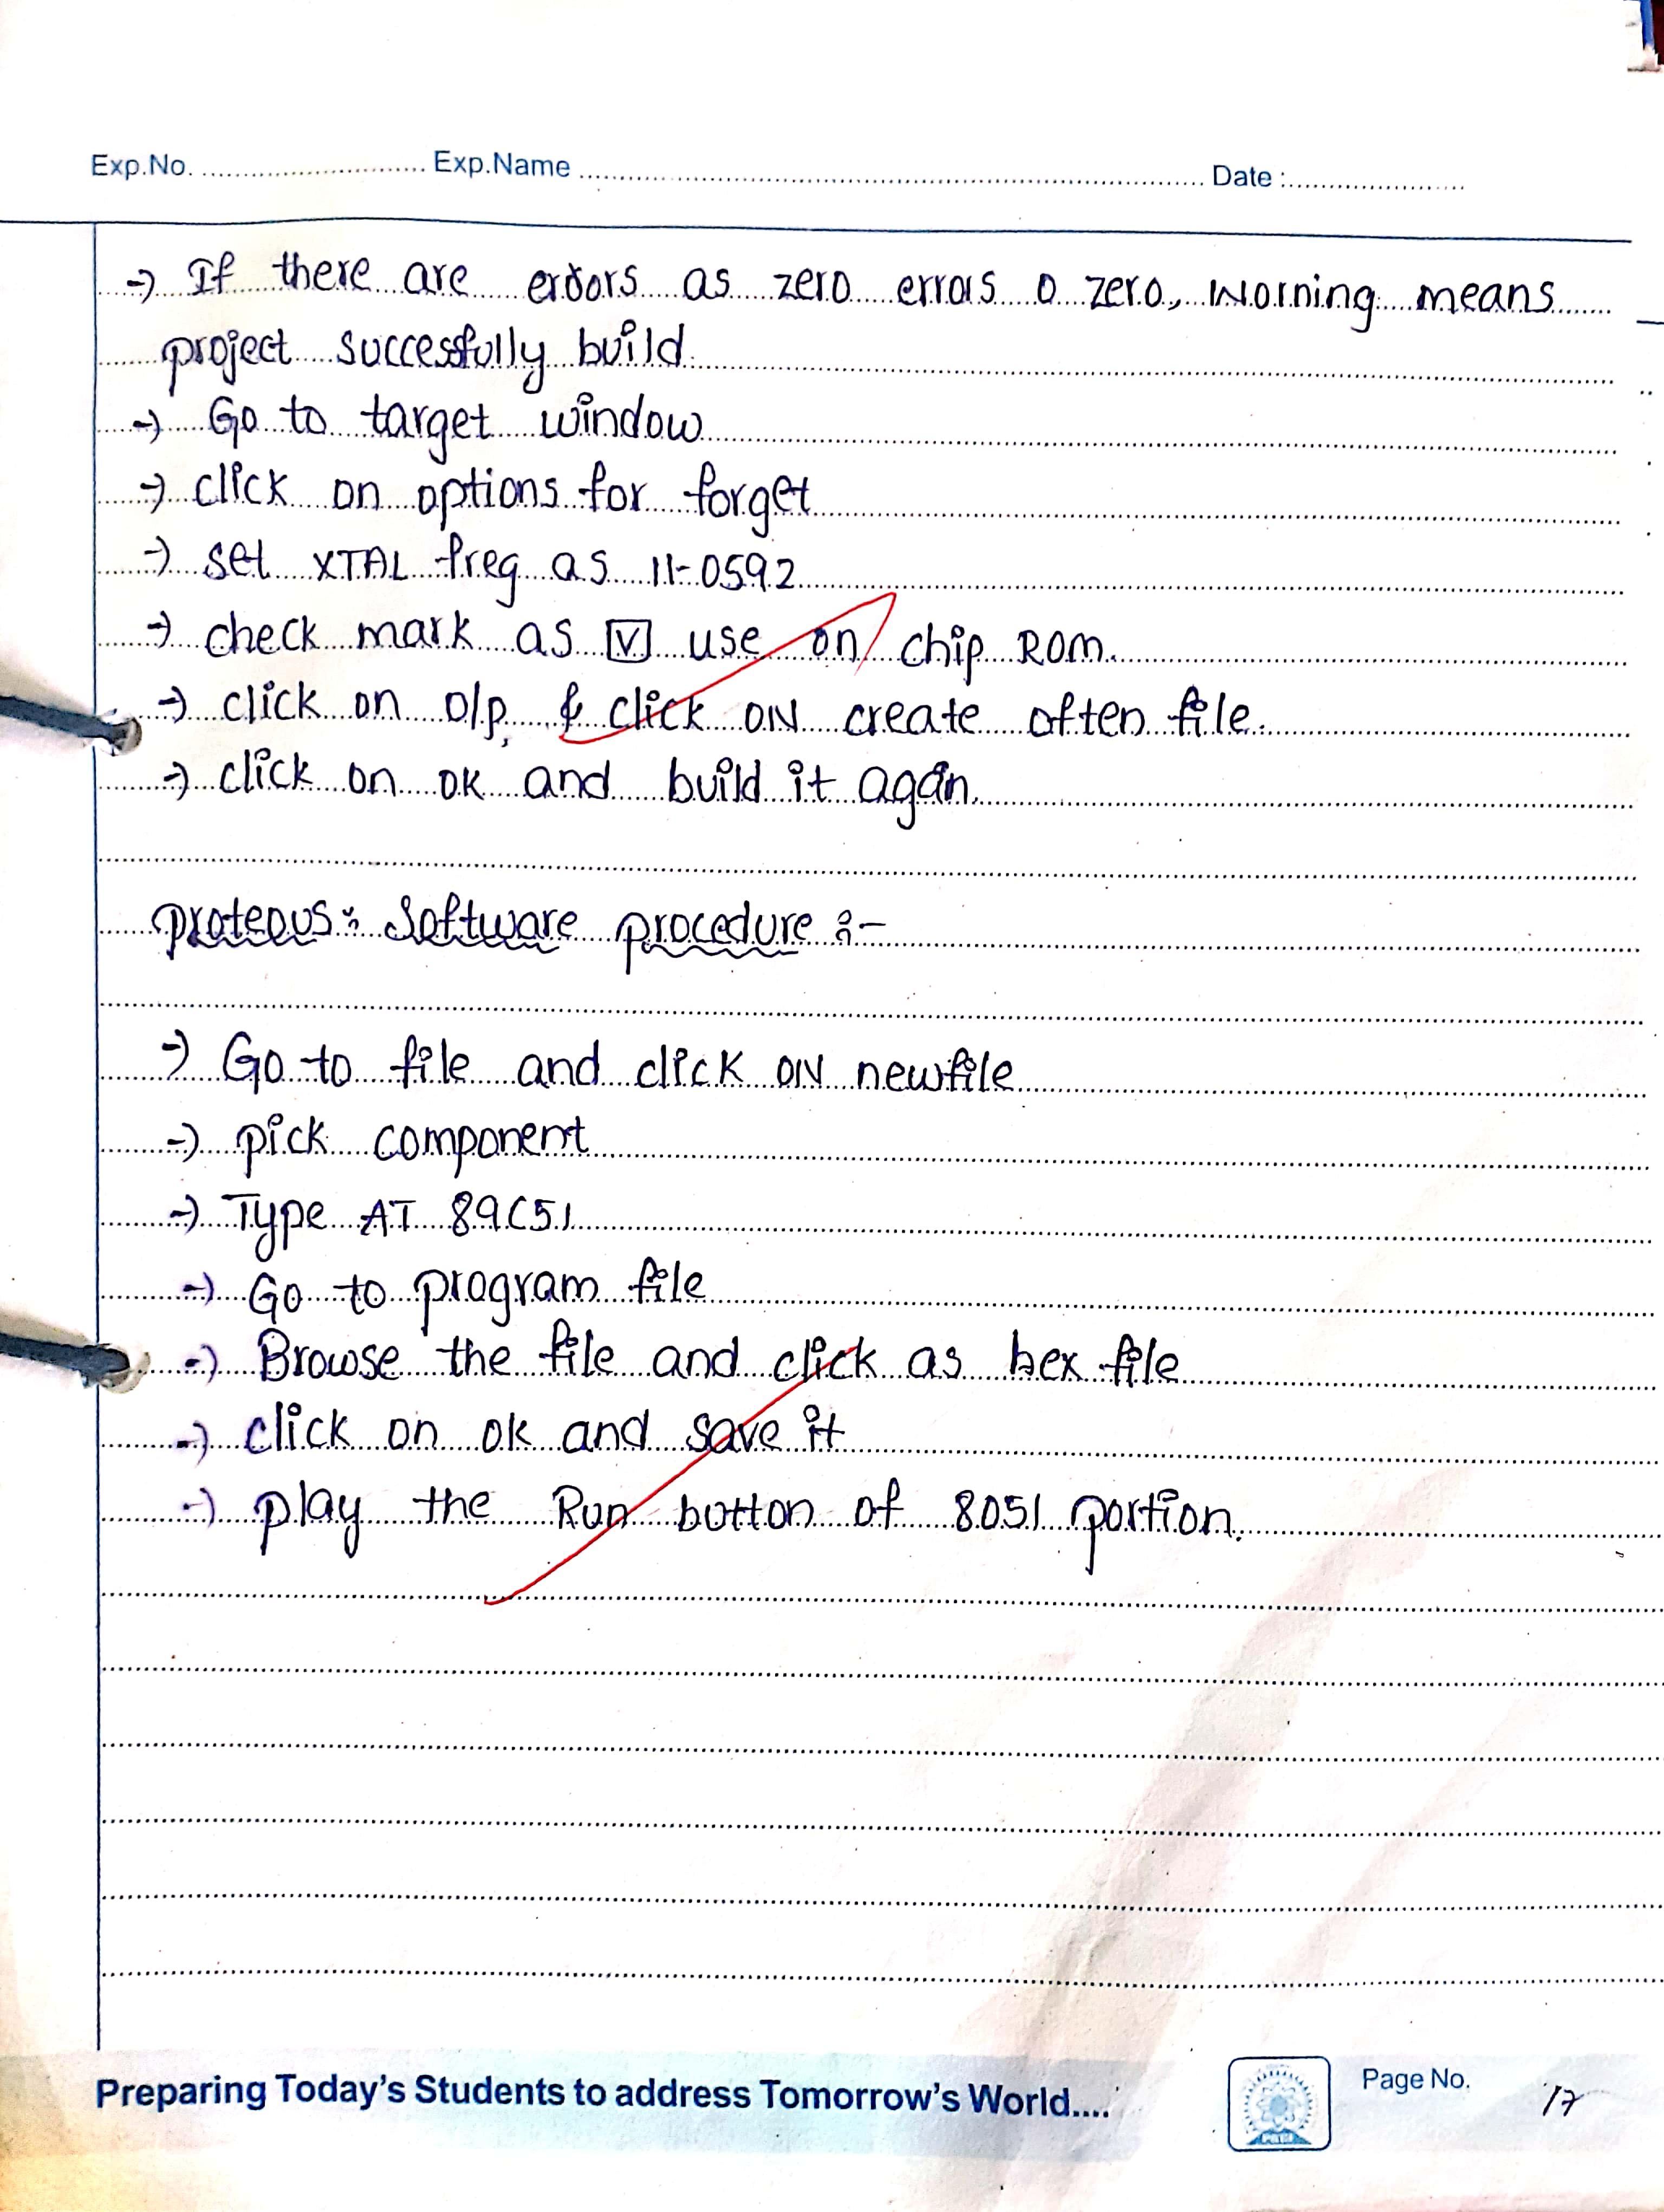 Exp.No. ............ Exp.Name ............ Date :............
→ If there are errors as zero errors 0 zero, worning means
project successfully build
→ Go to target window
→ click on options for forget
→ set XTAL freq as 11-0592
→ check mark as ☑ use on chip ROM.
→ click on O/P, & click ON create often file.
→ click on ok and build it again.
proteous: Software procedure :-
→ Go to file and click ON newfile
→ pick component
→ Type AT 89C51
→ Go to program file
→ Browse the file and click as hex file
→ click on ok and save it
→ play the Run button of 8051 portion.
Preparing Today's Students to address Tomorrow's World....
Page No. 17